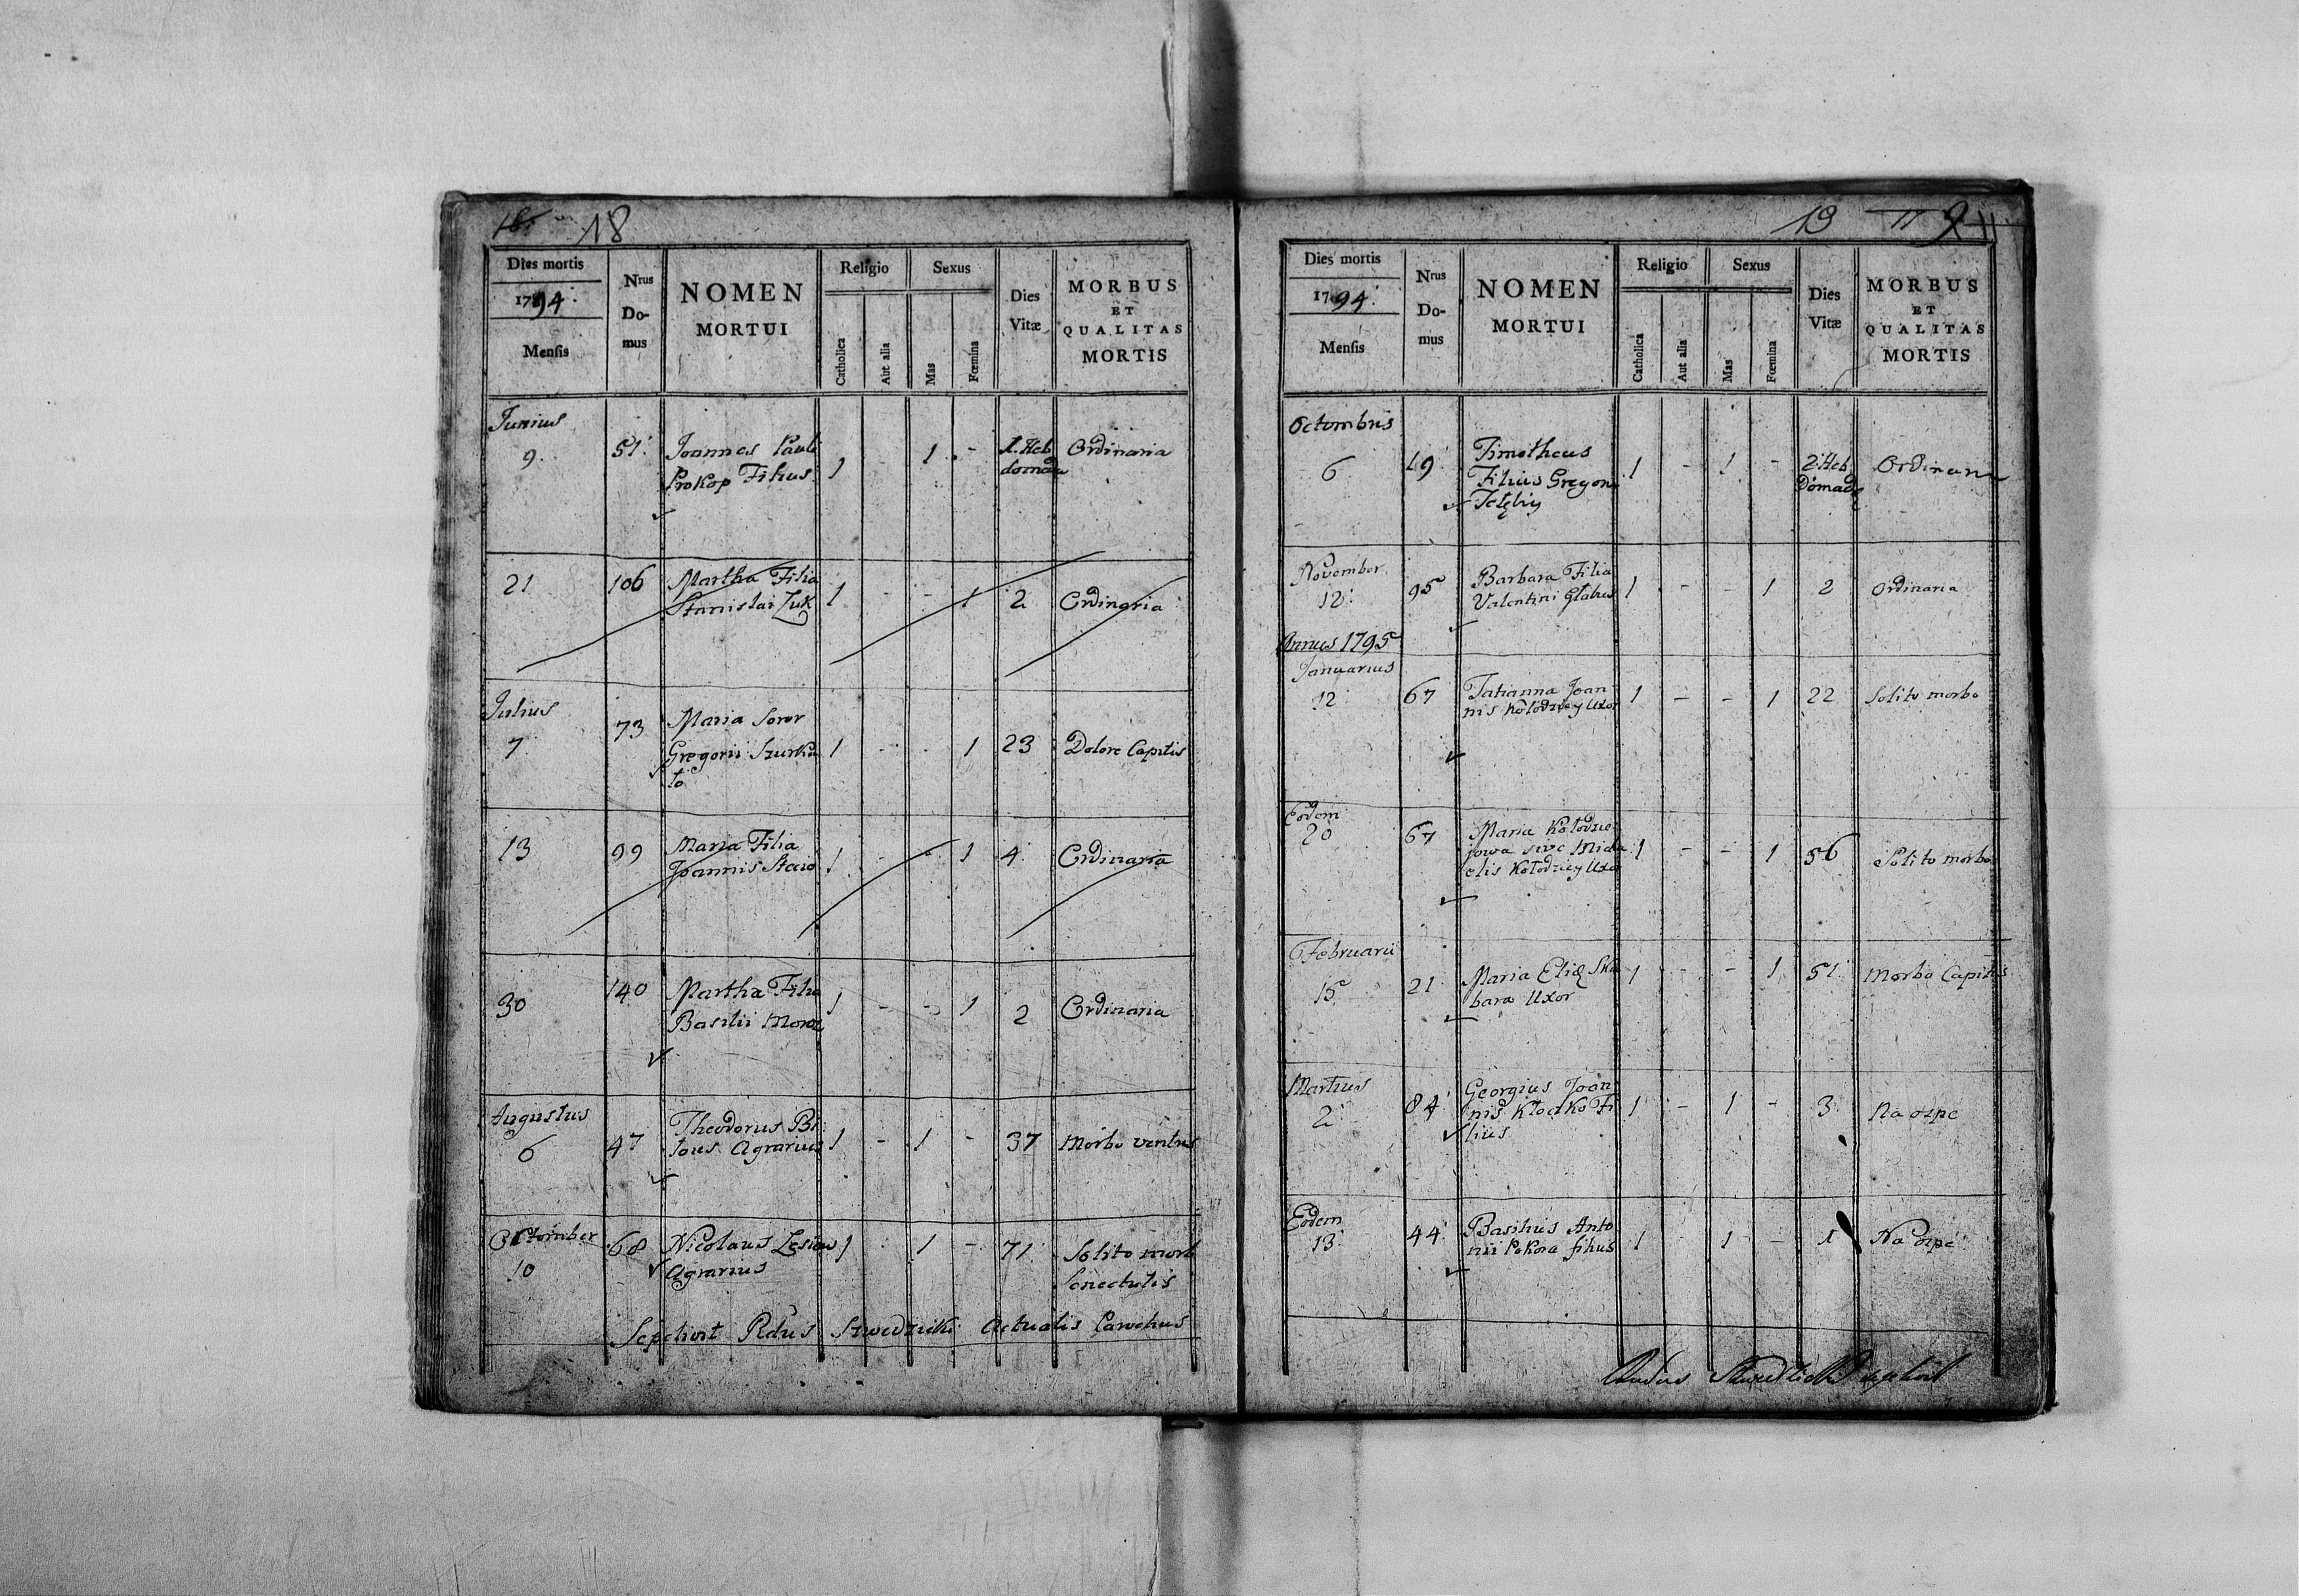 18
Dies mortis
1794.
Mensis
Nrus
Do-
mus
NOMEN
MORTUI
Religio
Catholica
Aut alia
Sexus
Mas
Fœmina
Dies
Vitæ
MORBUS
ET
QUALITAS
MORTIS
Junius
9. 51. Joannes Pauli 1 1 - 1. Heb Ordinaria
Prokop Filius domada
21 106 Martha Filia 1 - - 1 2 Ordinaria
Stanislai Zuk
Julius
7 73 Maria Soror 1 - - 1 23 Dolore Capitis
Gregorii Szurka
to
13 99 Maria Filia 1 - - 1 4 Ordinaria
Joannis
30 140 Martha Filia 1 - - 1 2 Ordinaria
Basilii Moroz
Augustus
6 47 Theodorus Bi 1 - 1 - 37 Morbo ventris
lous Agrarius
Octomber 68 Nicolaus Lesiow 1 1 - 71 Solito morb
10 Agrarius Senectutis
Sepelivit Rdus Szwedzicki Actualis Parochus
19
Dies mortis
1794.
Mensis
Nrus
Do-
mus
NOMEN
MORTUI
Religio
Catholica
Aut alia
Sexus
Mas
Fœmina
Dies
Vitæ
MORBUS
ET
QUALITAS
MORTIS
Octombris
6 19 Timotheus 1 - 1 - 2 Heb Ordinaria
Filius Gregorii Domadę
November
12. 95 Barbara Filia 1 - - 1 2 Ordinaria
Valentini Głabus
Annus 1795
Januarius
12 67 Tatianna Joan 1 - - 1 22 Solito morbo
nis Kołodziey Uxor
Eodem
20 67 Maria Kołodzie 1 - - 1 56 Solito morbo
jowa sive Micha
elis Kołodziey Uxor
Februarii
15 21 Maria Elię Ska 1 - - 1 51 Morbo Capitis
bara Uxor
Martius
2. 84 Georgius Joan 1 - 1 - 3 Na ospę
nis Kłoczko Fi
lius
Eodem
13 44 Basilius Anto 1 1 - 1 Na ospę
nii Pokora filius
Rndus Szwedzicki sepelivit